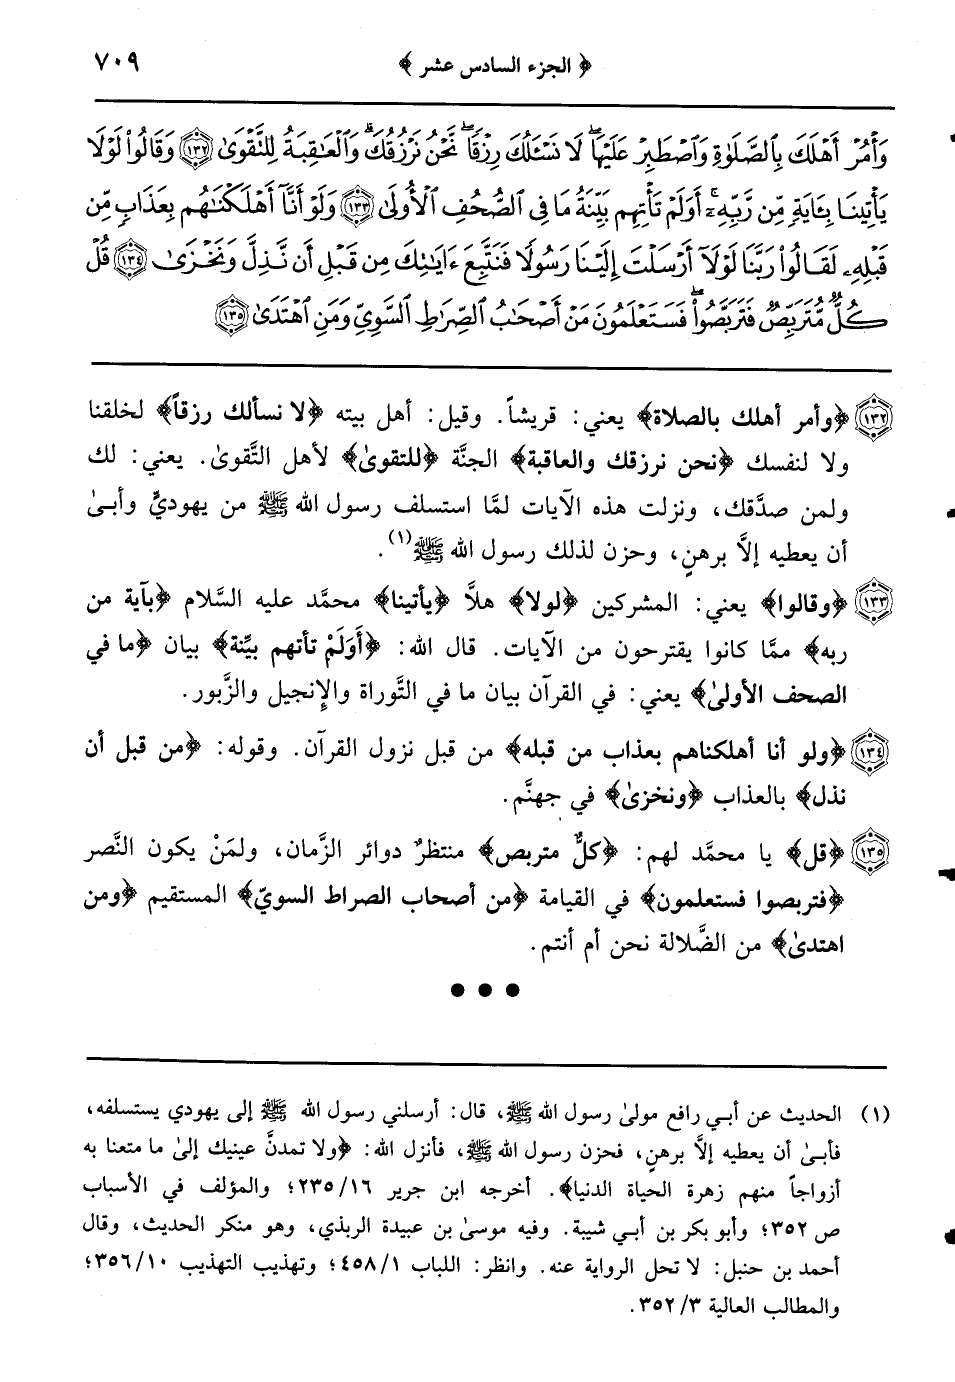 ﴿ الجزء السادس عشر ﴾ ٧٠٩
وَأْمُرْ أَهْلَكَ بِالصَّلَوٰةِ وَاصْطَبِرْ عَلَيْهَا لَا نَسْـَٔلُكَ رِزْقًا نَّحْنُ نَرْزُقُكَ وَالْعَٰقِبَةُ لِلتَّقْوَىٰ ﴿١٣٢﴾ وَقَالُوا۟ لَوْلَا
يَأْتِينَا بِـَٔايَةٍ مِّن رَّبِّهِۦٓ أَوَلَمْ تَأْتِهِم بَيِّنَةُ مَا فِى الصُّحُفِ الْأُولَىٰ ﴿١٣٣﴾ وَلَوْ أَنَّآ أَهْلَكْنَٰهُم بِعَذَابٍ مِّن
قَبْلِهِۦ لَقَالُوا۟ رَبَّنَا لَوْلَآ أَرْسَلْتَ إِلَيْنَا رَسُولًا فَنَتَّبِعَ ءَايَٰتِكَ مِن قَبْلِ أَن نَّذِلَّ وَنَخْزَىٰ ﴿١٣٤﴾ قُلْ
كُلٌّ مُّتَرَبِّصٌ فَتَرَبَّصُوا۟ فَسَتَعْلَمُونَ مَنْ أَصْحَٰبُ الصِّرَٰطِ السَّوِىِّ وَمَنِ اهْتَدَىٰ ﴿١٣٥﴾
﴿١٣٢﴾ ﴿وأمر أهلك بالصلاة﴾ يعني: قريشاً. وقيل: أهل بيته ﴿لا نسألك رزقاً﴾ لخلقنا
ولا لنفسك ﴿نحن نرزقك والعاقبة﴾ الجنَّة ﴿للتقوىٰ﴾ لأهل التَّقوىٰ. يعني: لك
ولمن صدَّقك، ونزلت هذه الآيات لمَّا استسلف رسول الله ﷺ من يهوديٍّ وأبىٰ
أن يعطيه إلاَّ برهنٍ، وحزن لذلك رسول الله ﷺ(١).
﴿١٣٣﴾ ﴿وقالوا﴾ يعني: المشركين ﴿لولا﴾ هلاَّ ﴿يأتينا﴾ محمَّد عليه السَّلام ﴿بآية من
ربه﴾ ممَّا كانوا يقترحون من الآيات. قال الله: ﴿أَوَلَمْ تأتهم بيِّنة﴾ بيان ﴿ما في
الصحف الأولىٰ﴾ يعني: في القرآن بيان ما في التَّوراة والإنجيل والزَّبور.
﴿١٣٤﴾ ﴿ولو أنا أهلكناهم بعذاب من قبله﴾ من قبل نزول القرآن. وقوله: ﴿من قبل أن
نذل﴾ بالعذاب ﴿ونخزىٰ﴾ في جهنَّم.
﴿١٣٥﴾ ﴿قل﴾ يا محمَّد لهم: ﴿كلٌّ متربص﴾ منتظرٌ دوائر الزَّمان، ولمَنْ يكون النَّصر
﴿فتربصوا فستعلمون﴾ في القيامة ﴿من أصحاب الصراط السويّ﴾ المستقيم ﴿ومن
اهتدىٰ﴾ من الضَّلالة نحن أم أنتم.
● ● ●
(١) الحديث عن أبي رافع مولىٰ رسول الله ﷺ، قال: أرسلني رسول الله ﷺ إلى يهودي يستسلفه،
فأبىٰ أن يعطيه إلاَّ برهنٍ، فحزن رسول الله ﷺ، فأنزل الله: ﴿ولا تمدنَّ عينيك إلىٰ ما متعنا به
أزواجاً منهم زهرة الحياة الدنيا﴾. أخرجه ابن جرير ٢٣٥/١٦؛ والمؤلف في الأسباب
ص ٣٥٢؛ وأبو بكر بن أبي شيبة. وفيه موسىٰ بن عبيدة الربذي، وهو منكر الحديث، وقال
أحمد بن حنبل: لا تحل الرواية عنه. وانظر: اللباب ٤٥٨/١؛ وتهذيب التهذيب ٣٥٦/١٠؛
والمطالب العالية ٣٥٢/٣.